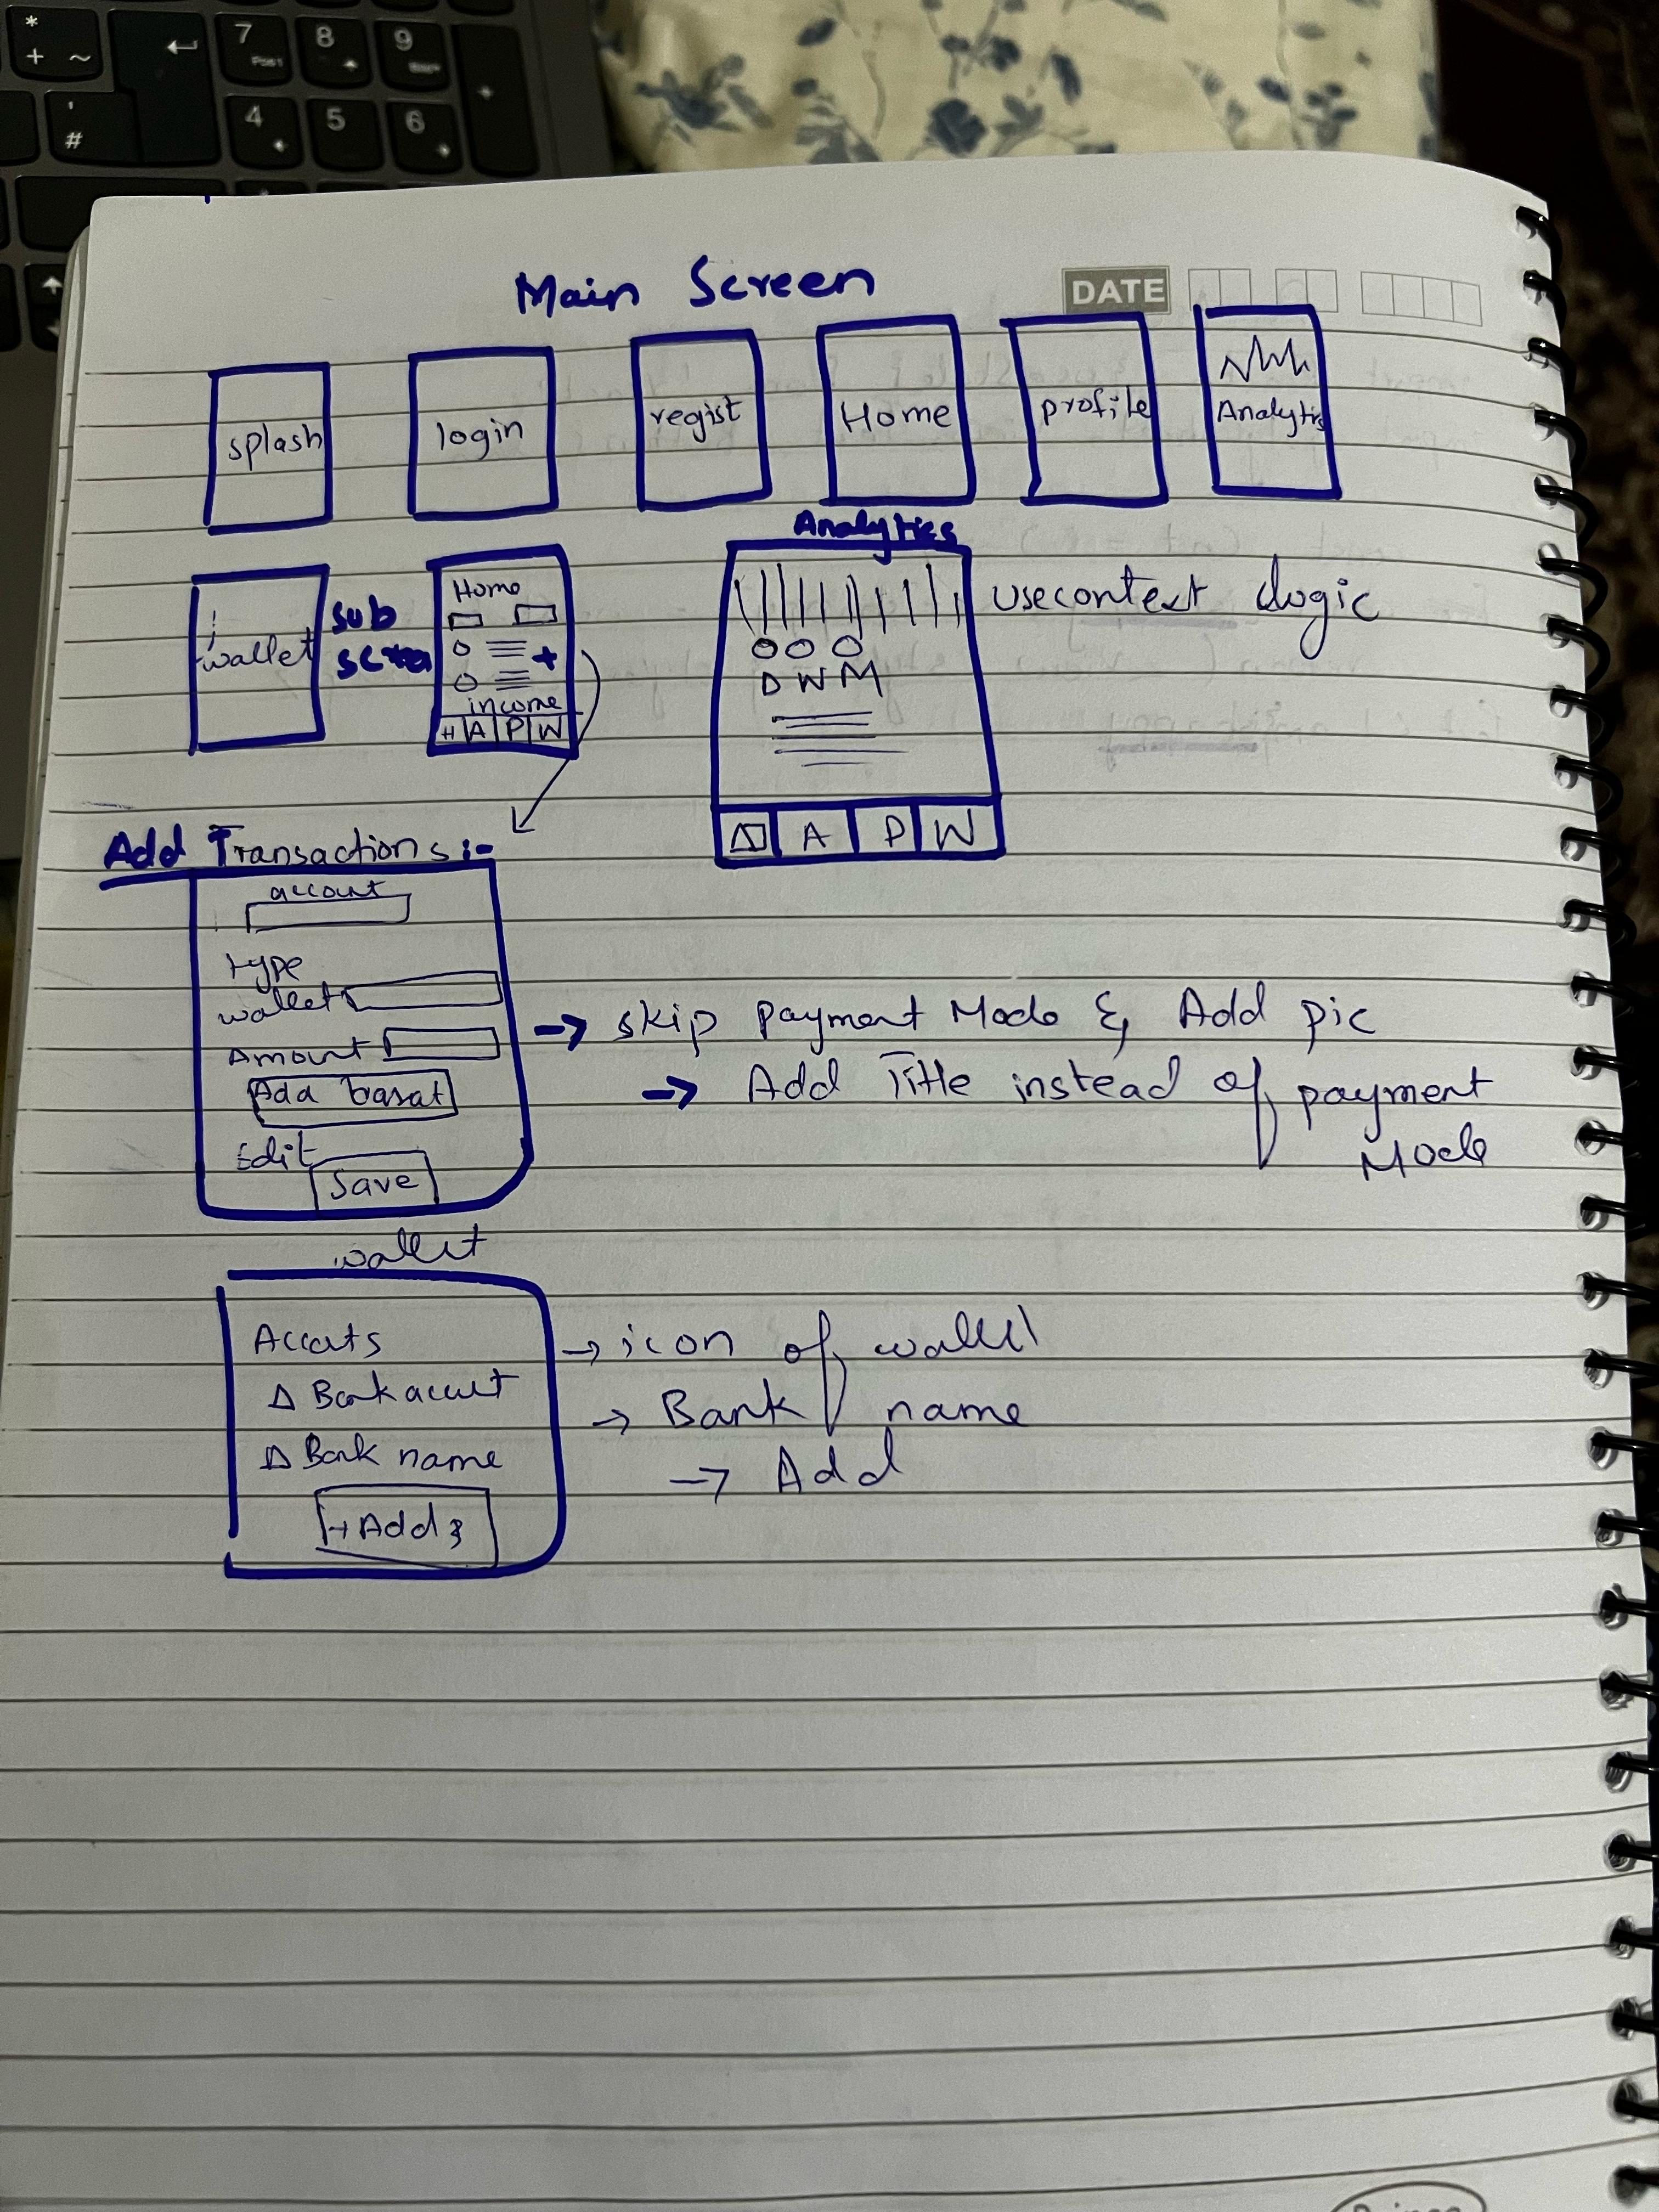 Main Screen
DATE
splash
login
regist
Home
profile
Analytis
wallet
sub
Home
income
H A P W
Analytics
usecontext logic
D W M
A P W
Add Transactions :-
account
type
wallet
Amount
Edit
Save
→ skip payment Mode & Add pic
→ Add Title instead of payment
Mode
wallet
Accouts
Δ Bank accout
Δ Bank name
+ Add
→ icon of wallet
→ Bank name
→ Add
* 7 8 9
+ ~
' 4 5 6
#